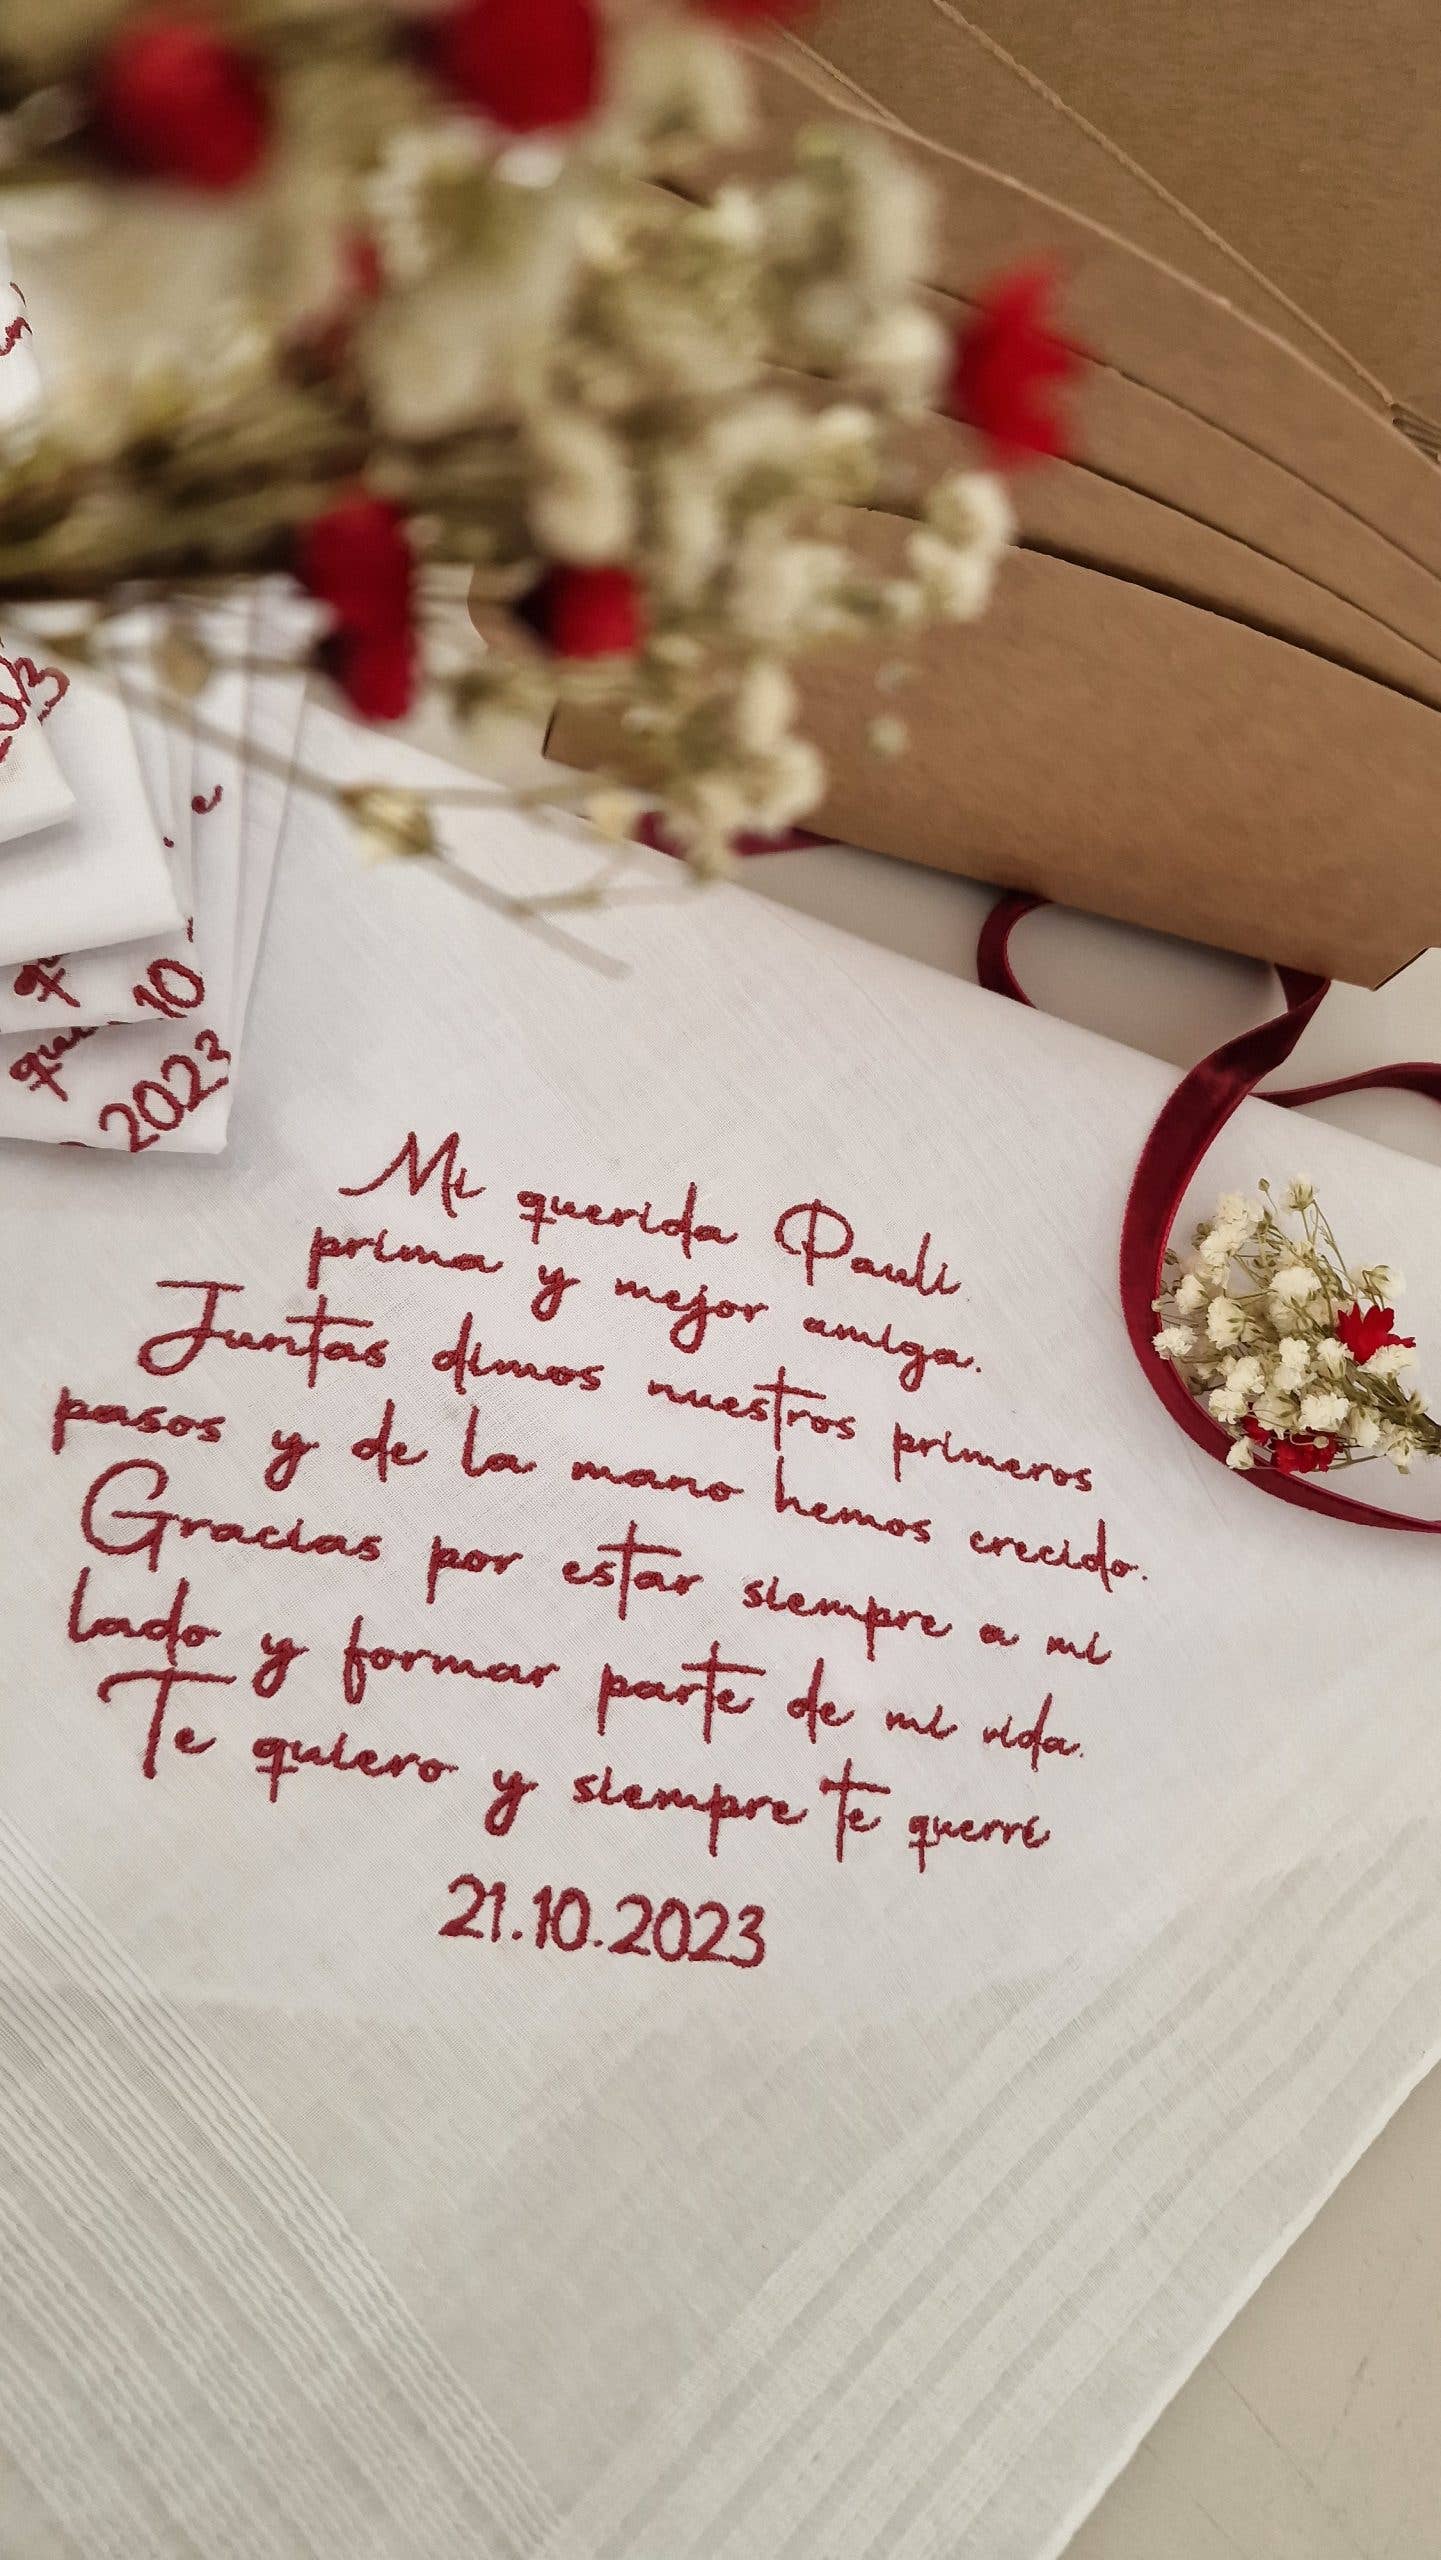 2023
10
2023
Mi querida Pauli
prima y mejor amiga.
Juntas dimos nuestros primeros
pasos y de la mano hemos crecido.
Gracias por estar siempre a mi
lado y formar parte de mi vida.
Te quiero y siempre te querré
21.10.2023